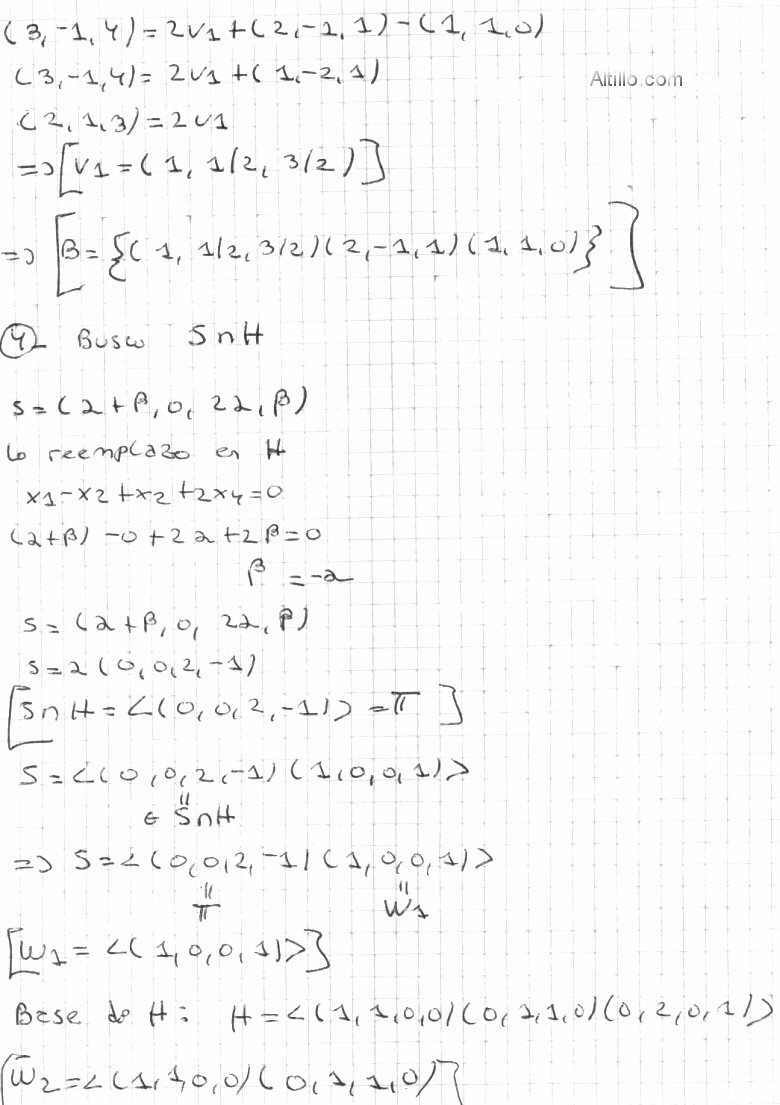 (3,-1,4)=2v1+(2,-1,1)-(1,1,0)
Altillo.com
(3,-1,4)=2v1+(1,-2,1)
(2,1,3)=2v1
=>[v1=(1,1/2,3/2)]
=>[B={(1,1/2,3/2)(2,-1,1)(1,1,0)}]
4- Busco SnH
s=(α+β,0,2α,β)
lo reemplazo en H
x1-x2+x2+2x4=0
(α+β)-0+2α+2β=0
β=-α
s=(α+β,0,2α,β)
s=α(0,0,2,-1)
[SnH=<(0,0,2,-1)>=π]
S=<(0,0,2,-1)(1,0,0,1)>
"
∈ SnH
=> S=<(0,0,2,-1)(1,0,0,1)>
" "
π W1
[W1=<(1,0,0,1)>]
Base de H: H=<(1,1,0,0)(0,1,1,0)(0,2,0,1)>
[W2=<(1,1,0,0)(0,1,1,0)]